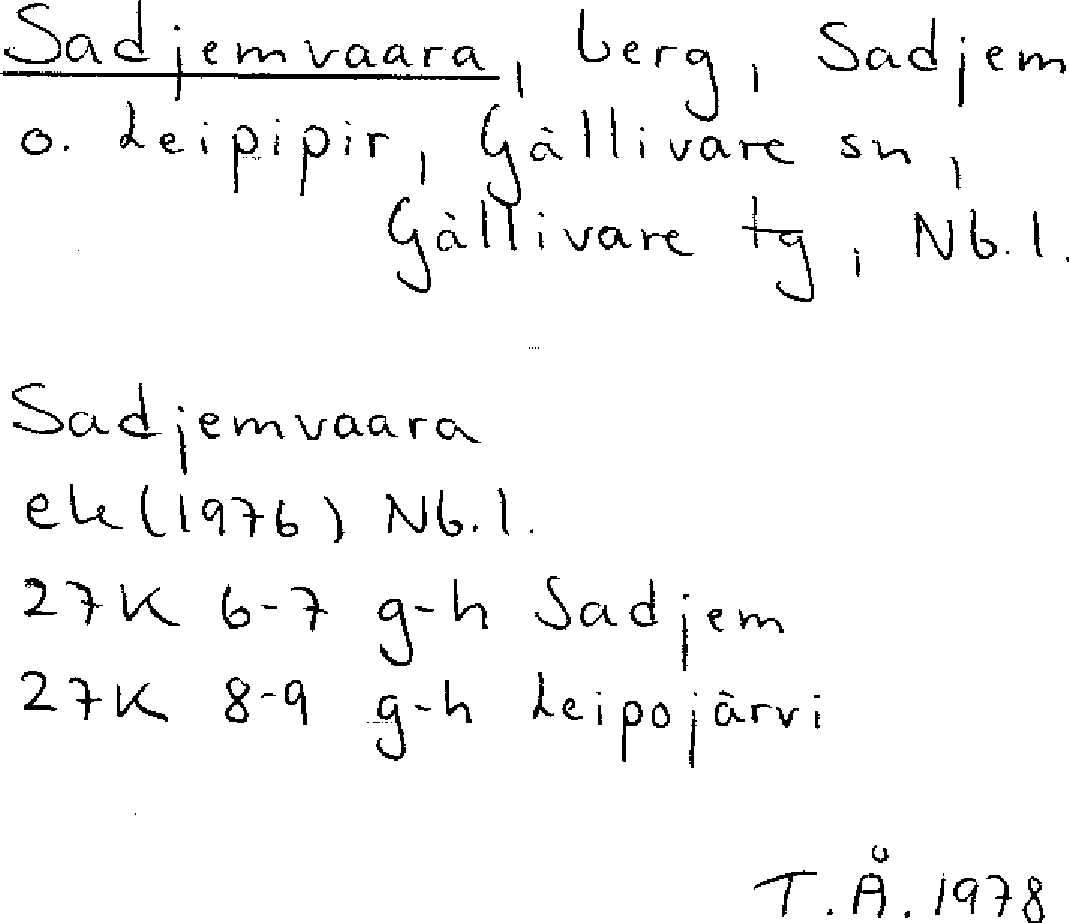 Sadjemvaara, berg, Sadjem
o. Leipipir, Gällivare sn,
Gällivare tg, Nb. l.
Sadjemvaara
ek (1976) Nb. l.
27K 6-7 g-h Sadjem
27K 8-9 g-h Leipojärvi
T. Å. 1978